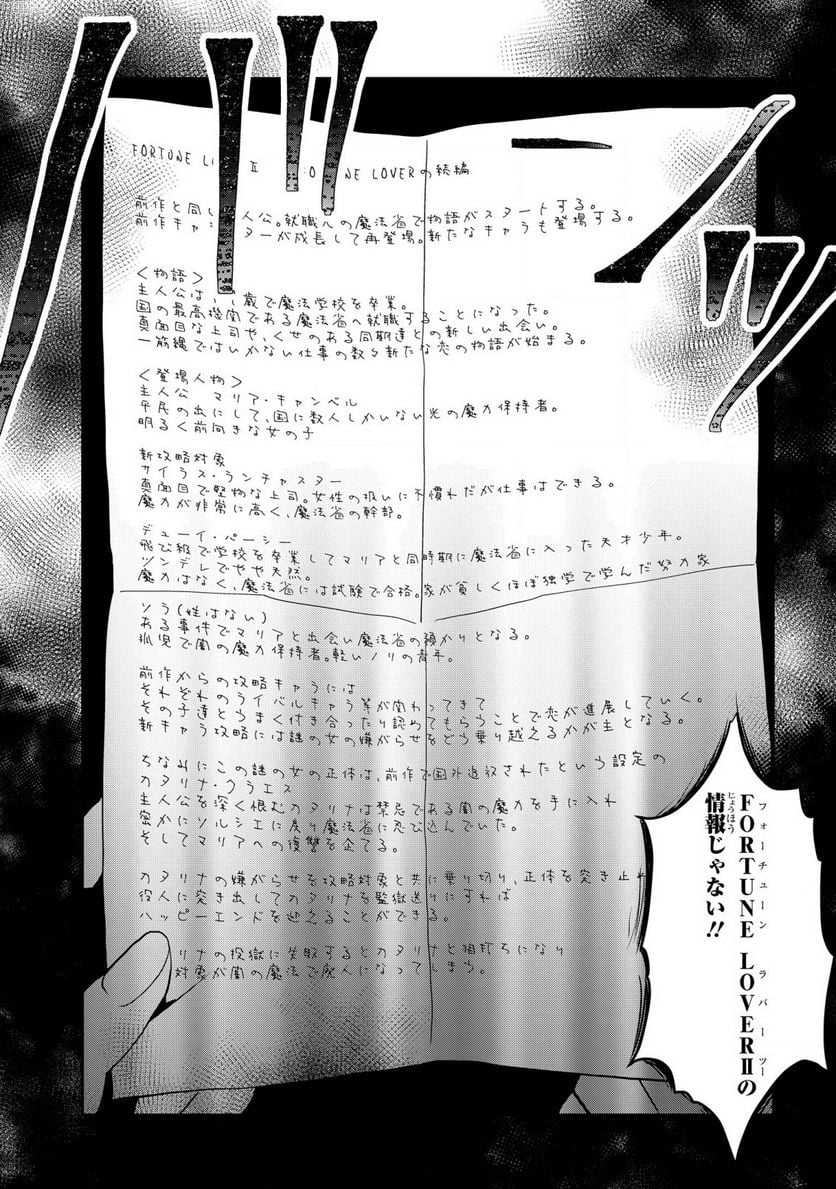 FORTUNE L Ⅱ O NE LOVERの続編
前作と同じ 人公。就職先の魔法省で物語がスタートする。
前作キャラ ターが成長して再登場。新たなキャラも登場する。
<物語>
主人公は 歳で魔法学校を卒業。
国の最高機関である魔法省へ就職することになった。
真面目な上司や、くせのある同期達との新しい出会い。
一筋縄ではいかない仕事の数々新たな恋の物語が始まる。
<登場人物>
主人公 マリア・キャンベル
平民の出にして、国に数人しかいない光の魔力保持者。
明るく前向きな女の子
新攻略対象
サイラス・ランチャスター
真面目で堅物な上司。女性の扱いに不慣れだが仕事はできる。
魔力が非常に高く、魔法省の幹部。
デューイ・パーシー
飛び級で学校を卒業してマリアと同時期に魔法省に入った天才少年。
ツンデレでやや天然。
魔力はなく、魔法省には試験で合格。家が貧しくほぼ独学で学んだ努力家
ソラ(姓はない)
ある事件でマリアと出会い魔法省の預かりとなる。
孤児で闇の魔力保持者。軽いノリの青年。
前作からの攻略キャラには
それぞれのライバルキャラ等が関わってきて
その子達とうまく付き合ったり認めてもらうことで恋が進展していく。
新キャラ攻略には謎の女の嫌がらせをどう乗り越えるかが主となる。
ちなみにこの謎の女の正体は、前作で国外追放されたという設定の
カタリナ・クラエス
主人公を深く恨むカタリナは禁忌である闇の魔力を手に入れ
密かにソルシエに戻り魔法省に忍び込んでいた。
そしてマリアへの復讐を企てる。
カタリナの嫌がらせを攻略対象と共に乗り切り、正体を突き止め
役人に突き出してカタリナを監獄送りにすれば
ハッピーエンドを迎えることができる。
リナの投獄に失敗するとカタリナと相打ちになり
対象が闇の魔法で廃人になってしまう。
FORTUNE LOVERⅡの
フォーチューン ラバーツー
情報じゃない!!
じょうほう